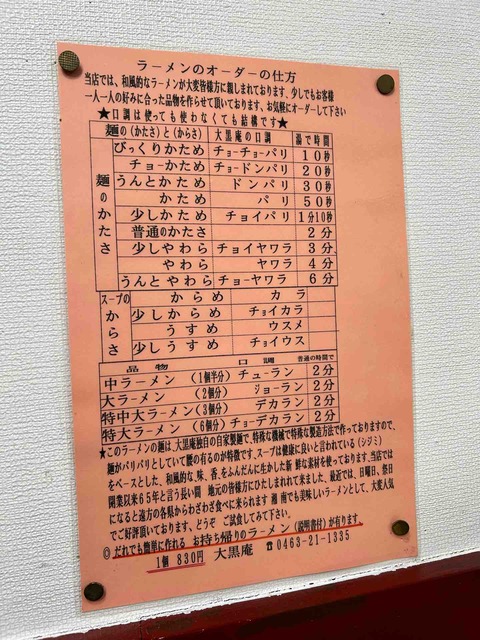 ラーメンのオーダーの仕方
当店では、和風的なラーメンが大変皆様方に親しまれております。少しでもお客様
一人一人の好みに合った品物を作らせて頂いております、お気軽にオーダーして下さい
★口調は使っても使わなくても結構です★
麺の(かたさ)と(からさ) 大黒庵の口調 湯で時間
麺のかたさ
びっくりかため チョーチョーパリ 10秒
チョーかため チョードンパリ 20秒
うんとかため ドンパリ 30秒
かため パリ 50秒
少しかため チョイパリ 1分10秒
普通のかたさ 2分
少しやわら チョイヤワラ 3分
やわら ヤワラ 4分
うんとやわら チョーヤワラ 6分
スープのからさ
からめ カラ
少しからめ チョイカラ
うすめ ウスメ
少しうすめ チョイウス
品物 口調 普通の時間で
中ラーメン (1個半分) チューラン 2分
大ラーメン (2個分) ジョーラン 2分
特中大ラーメン(3個分) デカラン 2分
特大ラーメン (6個分) チョーデカラン 2分
★このラーメンの麺は、大黒庵独自の自家製麺で、特殊な機械で特殊な製造方法で作っておりますので、
麺がパリパリとしていて腰の有るのが特徴です、スープは健康に良いと言われている(シジミ)
をベースとした、和風的な、味、香、をふんだんに生かした新鮮な素材を使っております、当店では
開業以来65年と言う長い間 地元の皆様方にひたしまれて来ました、最近では、日曜日、祭日
になると遠方の各県からわざわざ食べに来られます 湘南でも美味しいラーメンとして、大変人気
でご好評頂いております、どうぞ ご試食してみて下さい。
◎だれでも簡単に作れる お持ち帰りのラーメン(説明書付)が有ります
1個 830円 大黒庵 ☎0463-21-1335